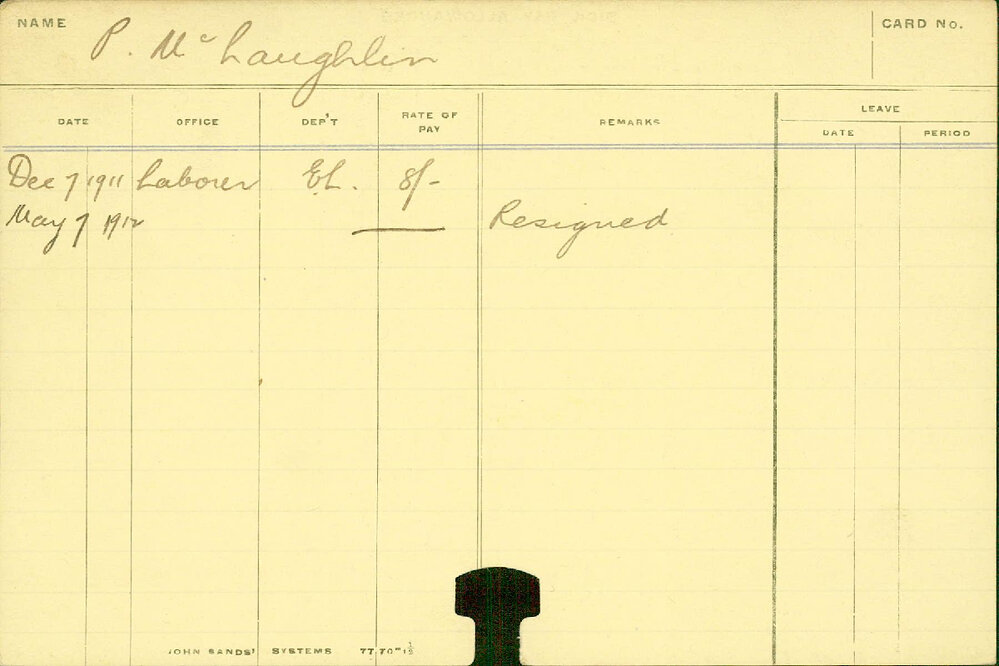 NAME P. McLaughlin CARD No.
DATE OFFICE DEP'T RATE OF PAY REMARKS LEAVE
DATE PERIOD
Dec 7 1911 Laborer E.L. 8/-
May 7 1912 Resigned
JOHN SANDS' SYSTEMS